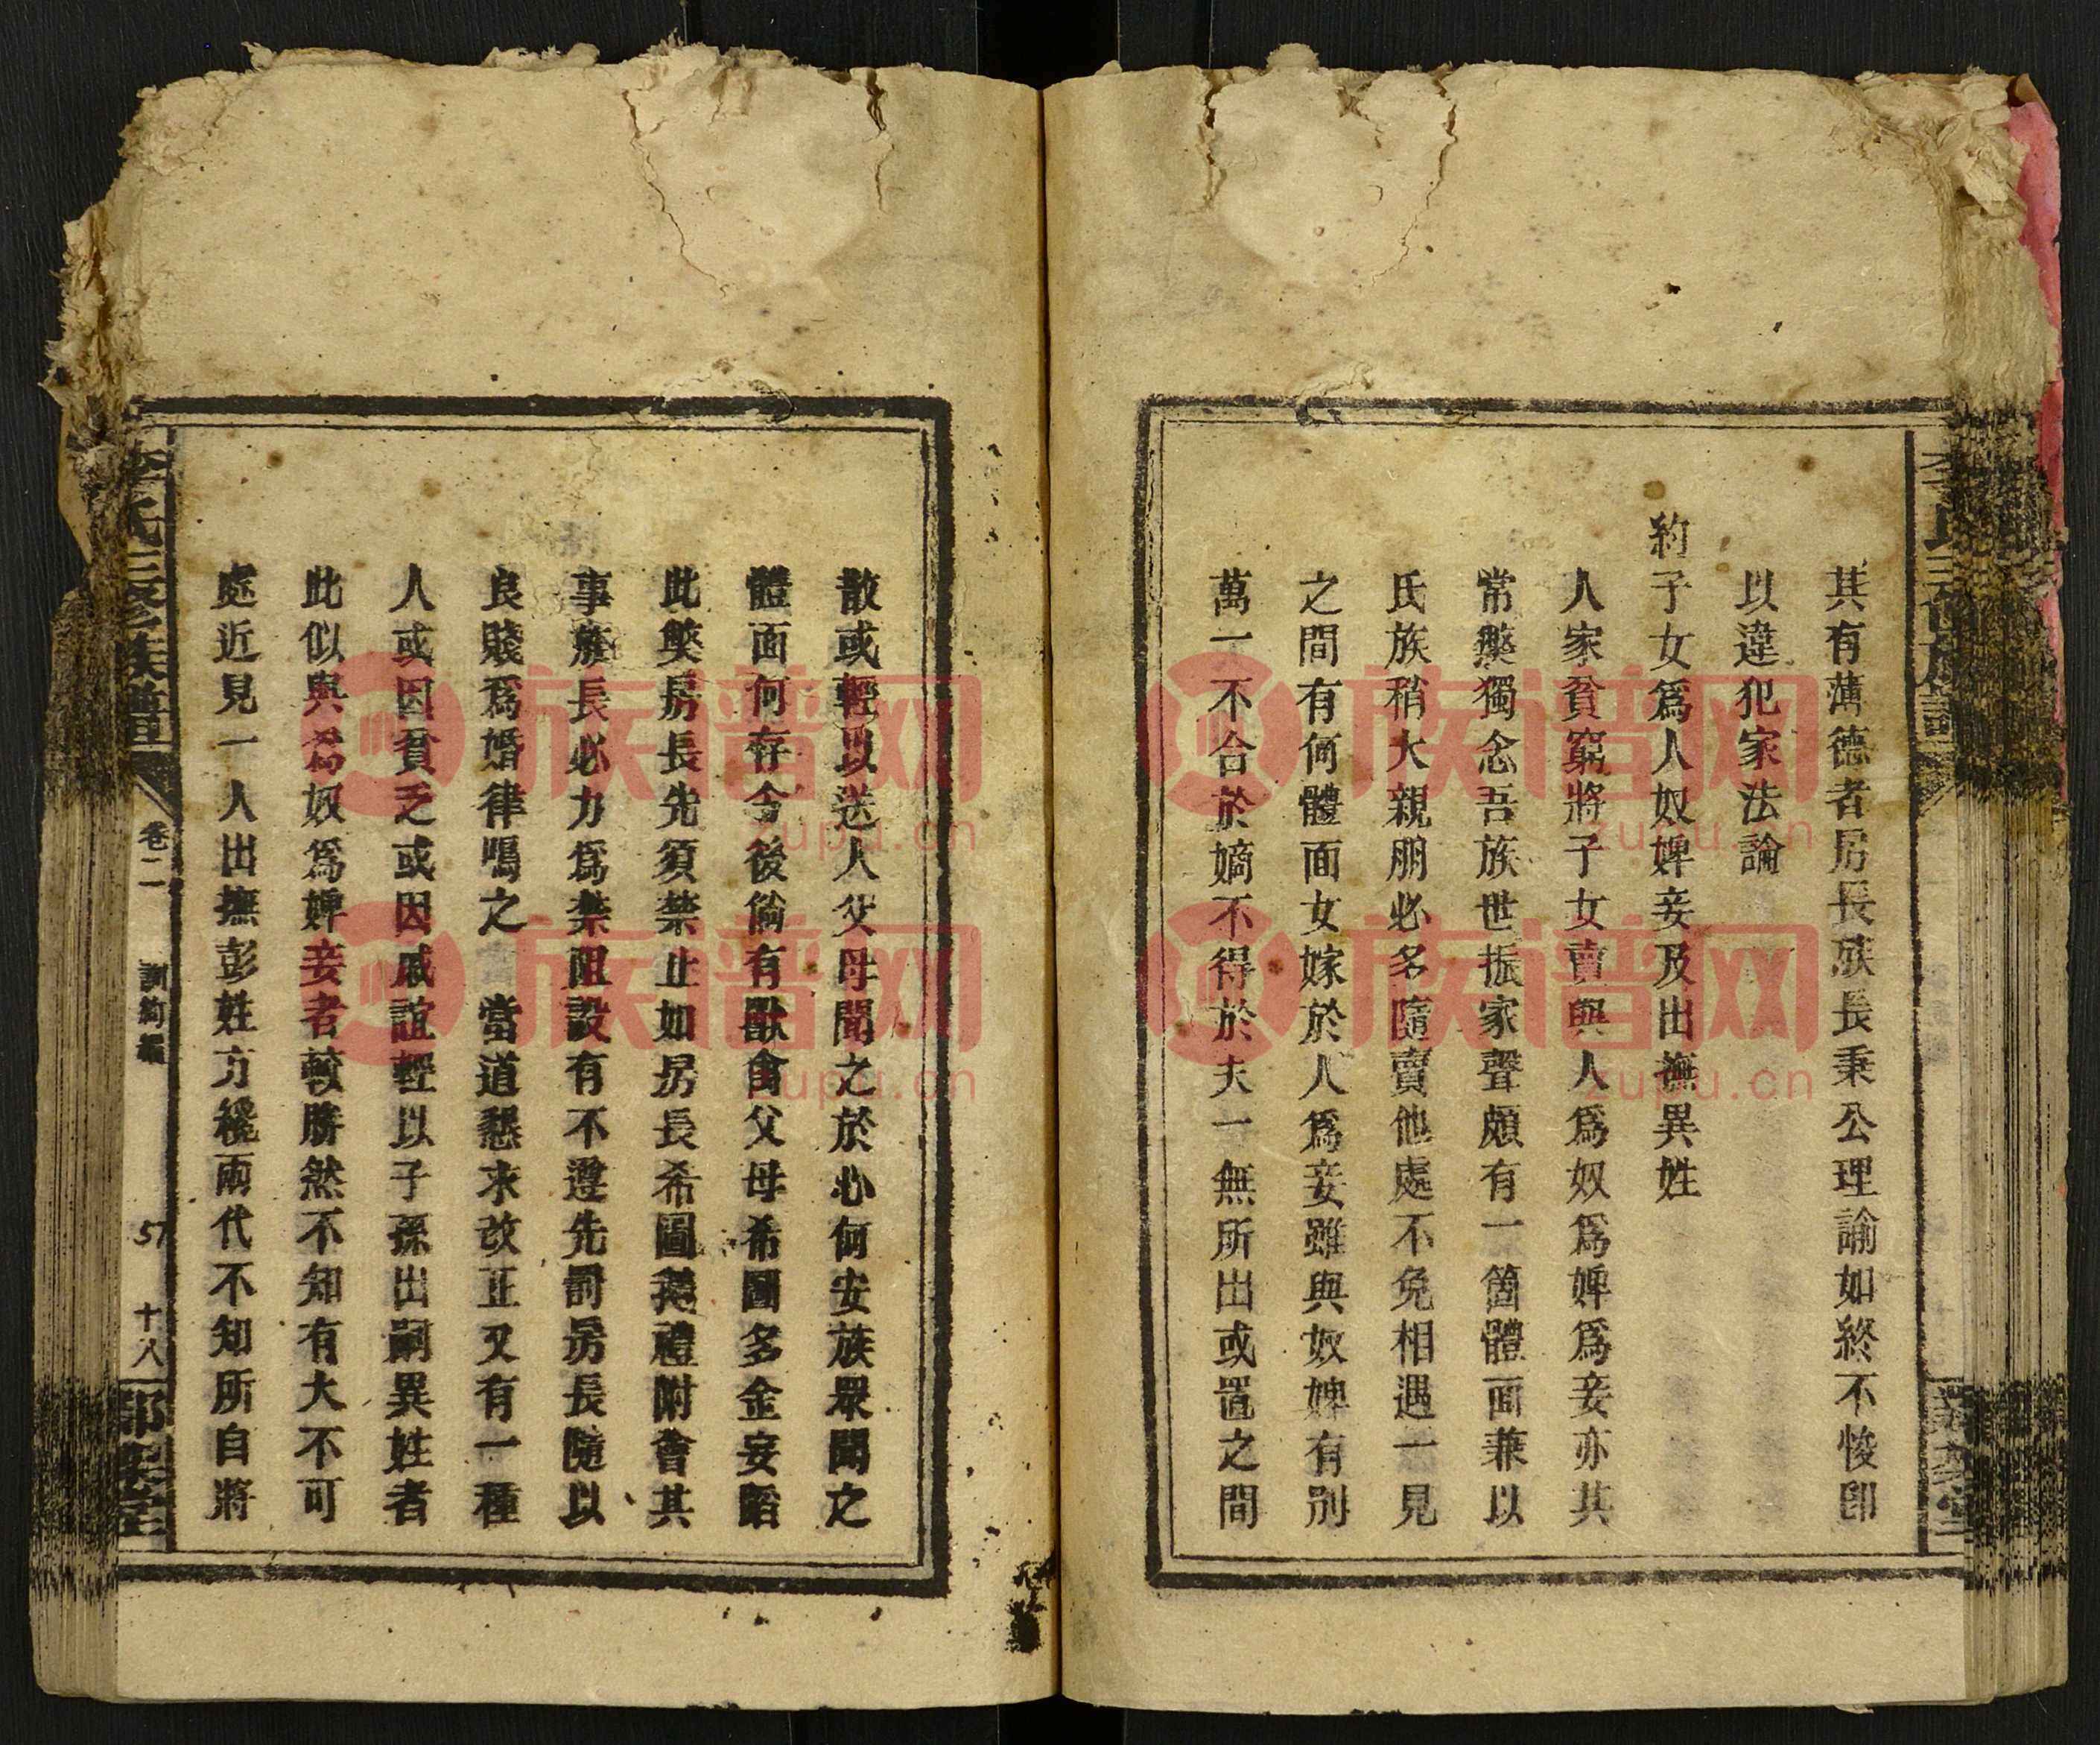 其有薄德者房長族長秉公理諭如終不悛卽
以違犯家法論
約子女爲人奴婢妾及出撫異姓
人家貧窮將子女賣與人爲奴爲婢爲妾亦其
常獘獨念吾族世振家聲頗有一箇體面兼以
氏族稍大親朋必多隨賣他處不免相遇一見
之間有何體面女嫁於人爲妾雖與奴婢有別
萬一不合於嫡不得於夫一無所出或置之間
散或輕以送人父母聞之於心何安族眾聞之
體面何存令後倘有獸禽父母希圖多金妄蹈
此獘房長先須禁止如房長希圖禮附會其
事族長必力爲禁阻設有不遵先罰房長隨以
良賤爲婚律鳴之 當道懇求改正又有一種
人或因貧乏或因戚誼輕以子孫出嗣異姓者
此似與爲奴爲婢妾者較勝然不知有大不可
處近見一人出撫彭姓方纔兩代不知所自將
李氏三修族譜
卷二
訓約編
57
十八
李氏三修族譜
族谱网
zupu.cn
族谱网
zupu.cn
族谱网
zupu.cn
族谱网
zupu.cn